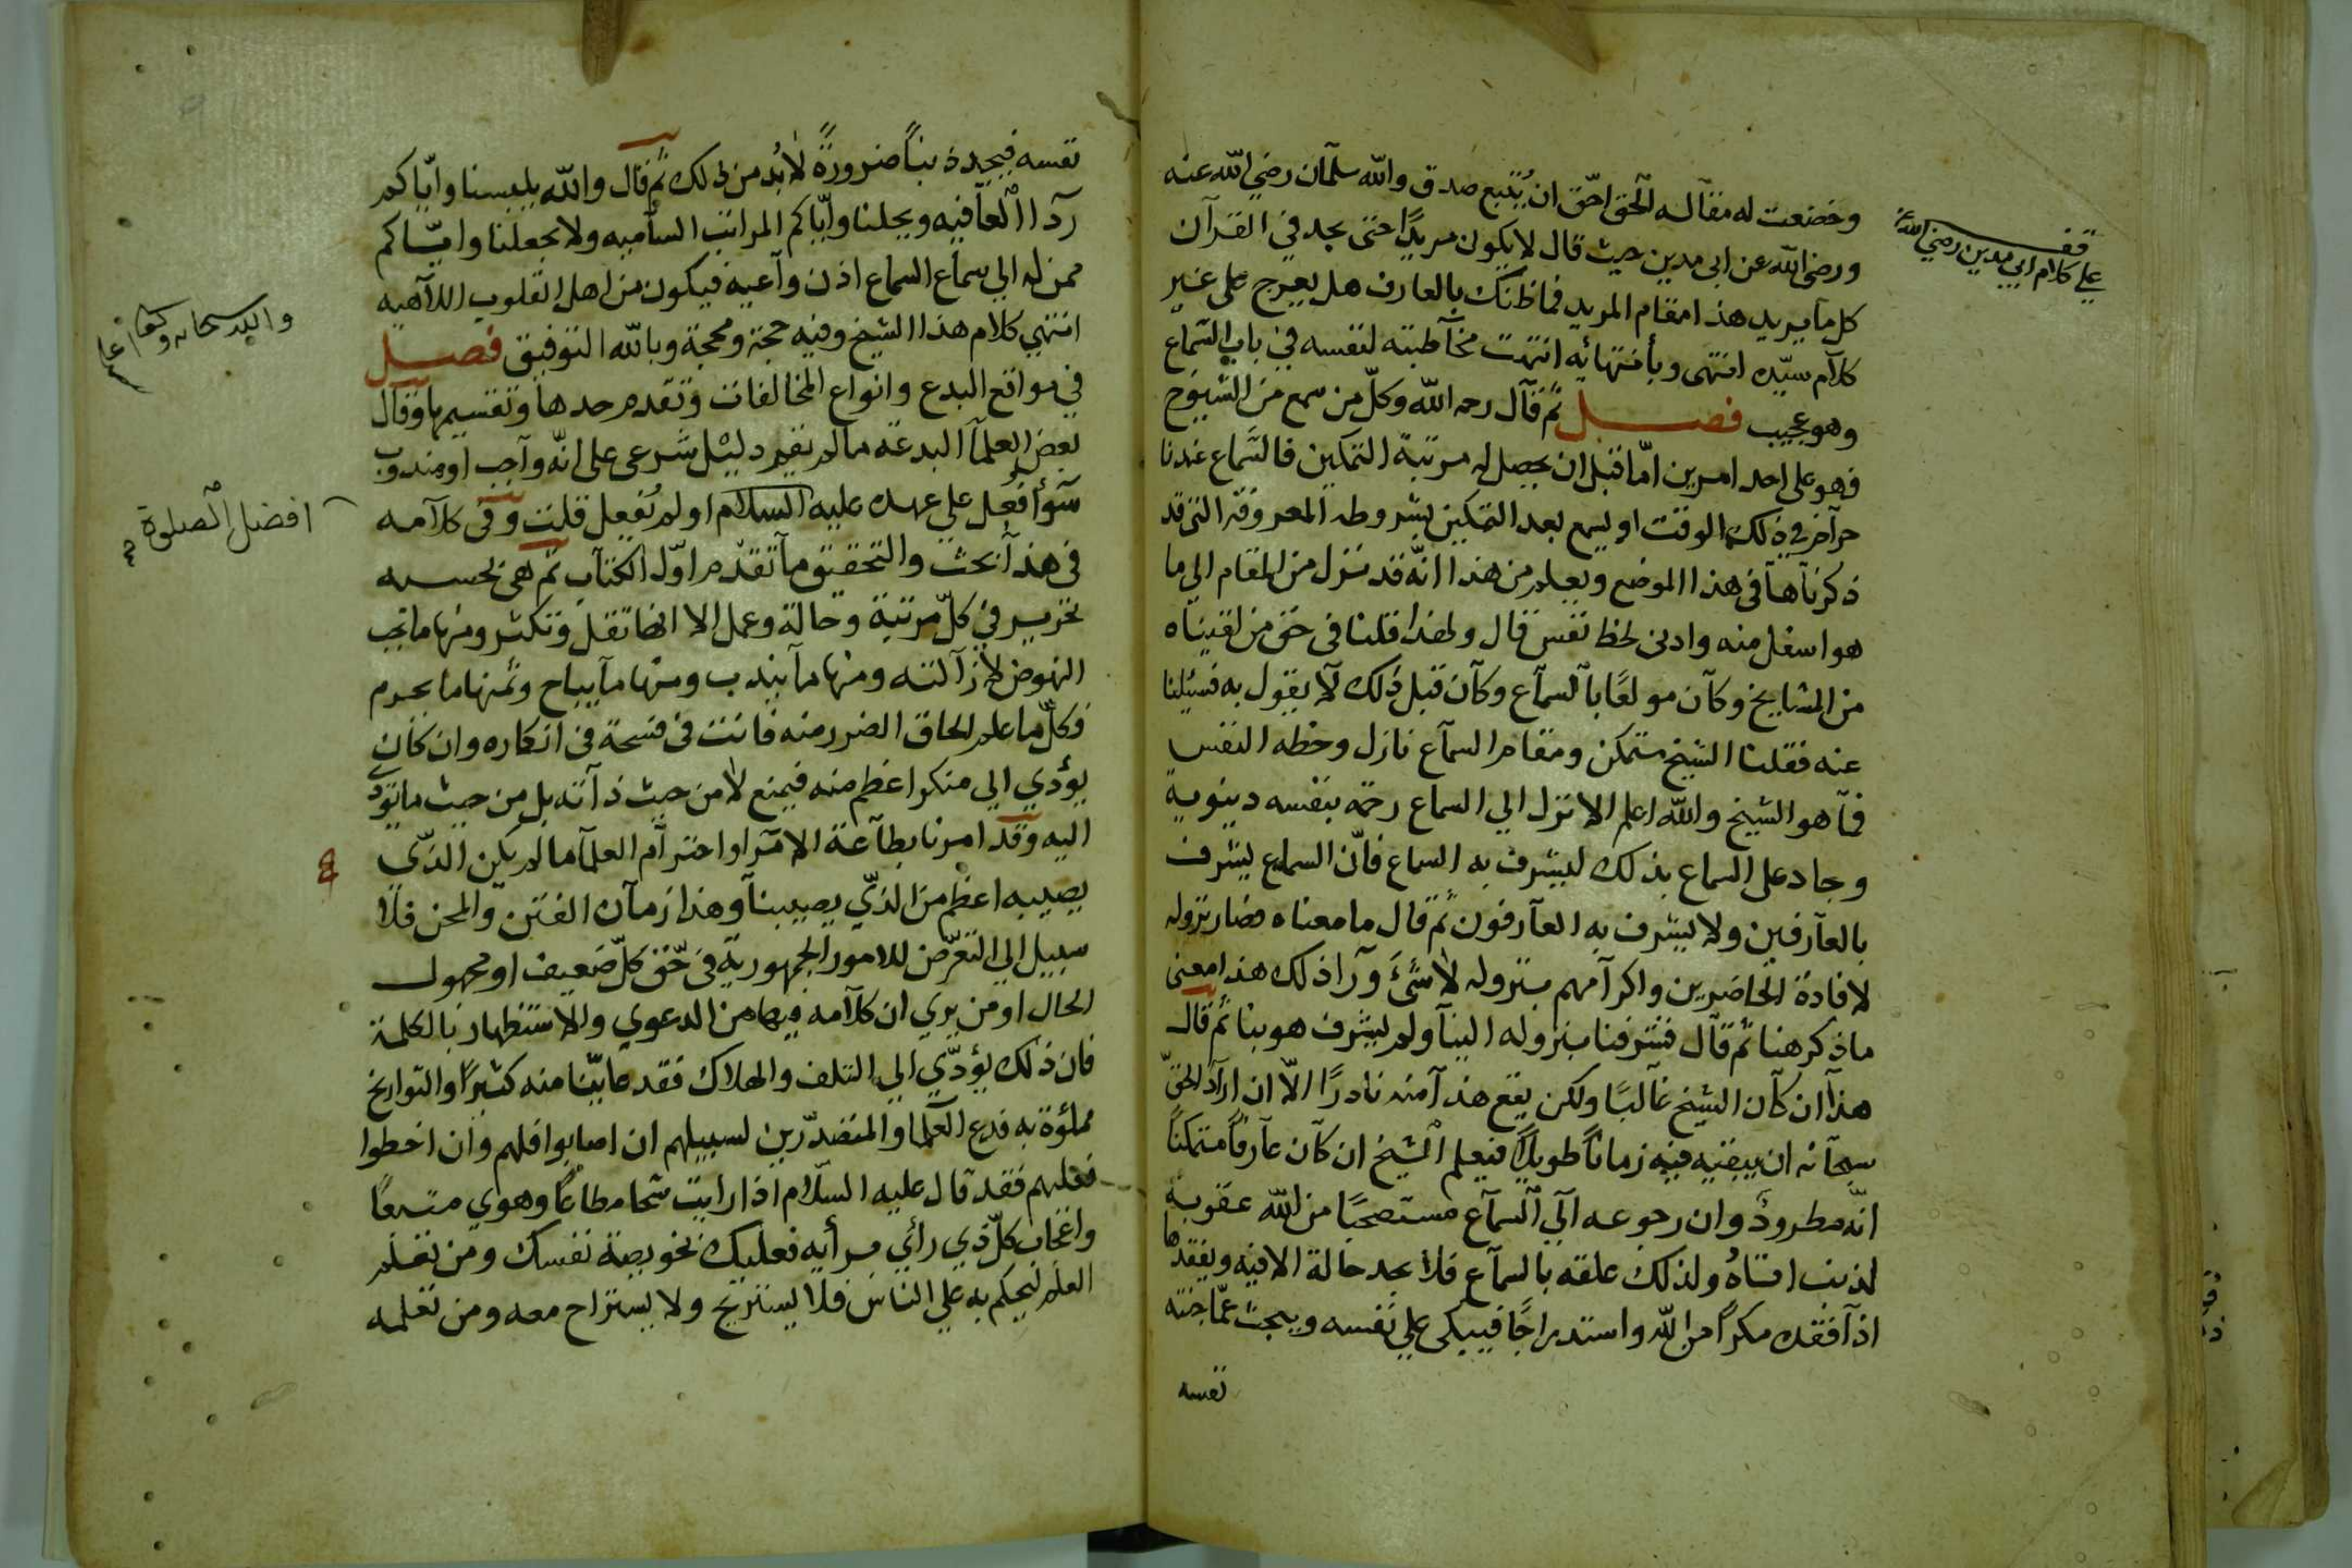 وخضعت له مقاله الحق احق ان يُتبع صدق والله سلمان رضي الله عنه
ورضي الله عن ابى مدين حيث قال لا يكون مريدًا حتى يجد في القرآن
كل ما يريد هذا مقام المريد فما ظنك بالعارف هل يعرج على غير
كلام سيّده انتهى وبأنتهائه انتهت مخاطبته لنفسه في باب السماع
وهو عجيب فصل ثم قال رحمه الله وكلّ من سمع من الشيوخ
فهو على احد امرين امّا قبل ان يحصل له مرتبة التمكين فالسماع عندنا
حرآم في ذلك الوقت او ليسمع بعد التمكين بشروطه المعروفة التي قد
ذكرناها في هذا الموضع ويعلم من هذا انّه قد نزل من المقام الي ما
هو اسفل منه وادنى لحظ نفس قال ولهذا قلنا في حق من لقيناه
من المشايخ وكان مولعًا بالسماع وكان قبل ذلك لا يقول به فسئلنا
عنه فقلنا الشيخ متمكن ومقام السماع نازل وحظه النفس
فما هو الشيخ والله اعلم الا نزل الي السماع رحمة بنفسه دينوية
وجاد على السماع بذلك ليشرف به السماع فانّ السماع يشرف
بالعارفين ولا يشرف به العارفون ثم قال ما معناه فصار نزوله
لافادة الحاضرين واكرامهم بنزوله لا شئ وراذلك هذا معنى
ماذكر هنا ثم قال فتشرفنا بنزوله الينا ولم يشرف هو بنا ثم قال
هذا ان كان الشيخ غالبًا ولكن يقع هذا منه نادرًا الّا ان اراد الحقّ
سبحانه ان يبقيه فيه زمانًا طويلًا فيعلم الشيخ ان كان عارفًا متمكنًا
انّه مطرودٌ وان رجوعه الي السماع مستصحبًا من الله عقوبة
لذنب اتاهُ ولذلك علقه بالسماع فلا يجد حالة الا فيه ويفقدها
اذا فقده مكرًا من الله واستدراجًا فيبكى علي نفسه ويبحث عمّا جنته
نفسه
قف
علي كلام ابي مدين رضي الله عنه
نفسه فيجده بنًا ضرورةً لا بُد من ذلك ثم قال والله يلبسنا وايّاكم
ردا العافيه ويحلنا وايّاكم المراتب الساميه ولا يجعلنا وايّاكم
ممن له الي سماع السماع اذن واعيه فيكون من اهل القلوب اللاهيه
انتهي كلام هذا الشيخ وفيه حجة ومحجة وبالله التوفيق فصل
في مواقع البدع وانواع المخالفات وتقدم حدها وتقسيمها وقال
بعض العلما البدعة ما لم يقم دليل شرعى على انّه واجب او مندوب
سوأ فُعل علي عهده عليه السلام او لم تُفعل قلت وفي كلامه
فى هذا بحث والتحقيق ما تقدّم اوّل الكتاب ثم هي بحسبه
تجري في كلّ مرتبة وحالة وعمل الا انها تقل وتكثر ومنها ما يجب
النهوض لازالته ومنها ما يندب ومنها ما يباح ومنها ما يحرم
فكلّ ما علم لحاق الضرر منه فانت في فسحة في انكاره وان كان
يؤدي الي منكر اعظم منه فيمنع لا من حيث ذاته بل من حيث ما يؤدي
اليه وقد امرنا بطاعة الامرا واحترام العلما ما لم يكن الذّى
يصيبه اعظم من الذّي يصيبنا وهذا زمان الفتن والمحن فلا
سبيل الي التعرّض للامور الجمهورية في حقّ كلّ ضعيف او مجهول
الحال او من يري ان كلامه فيها من الدعوي والاستظهار بالكلمة
فان ذلك يؤدّي الي التلف والهلاك فقد عاينّا منه كثيرًا والتواريخ
مملؤة به فدع العلما والمتصدّرين لسبيلهم ان اصابوا فلهم وان اخطوا
فعليهم فقد قال عليه السّلام اذا رايت شحا مطاعًا وهوي متبعًا
واعجاب كلّ ذي رأي برأيه فعليك بخويصة نفسك ومن تعلّم
العلم ليحكم به علي الناس فلا يستريح ولا يستراح معه ومن تعلمه
والله سبحانه وتعا اعلم
افضل الصلوة